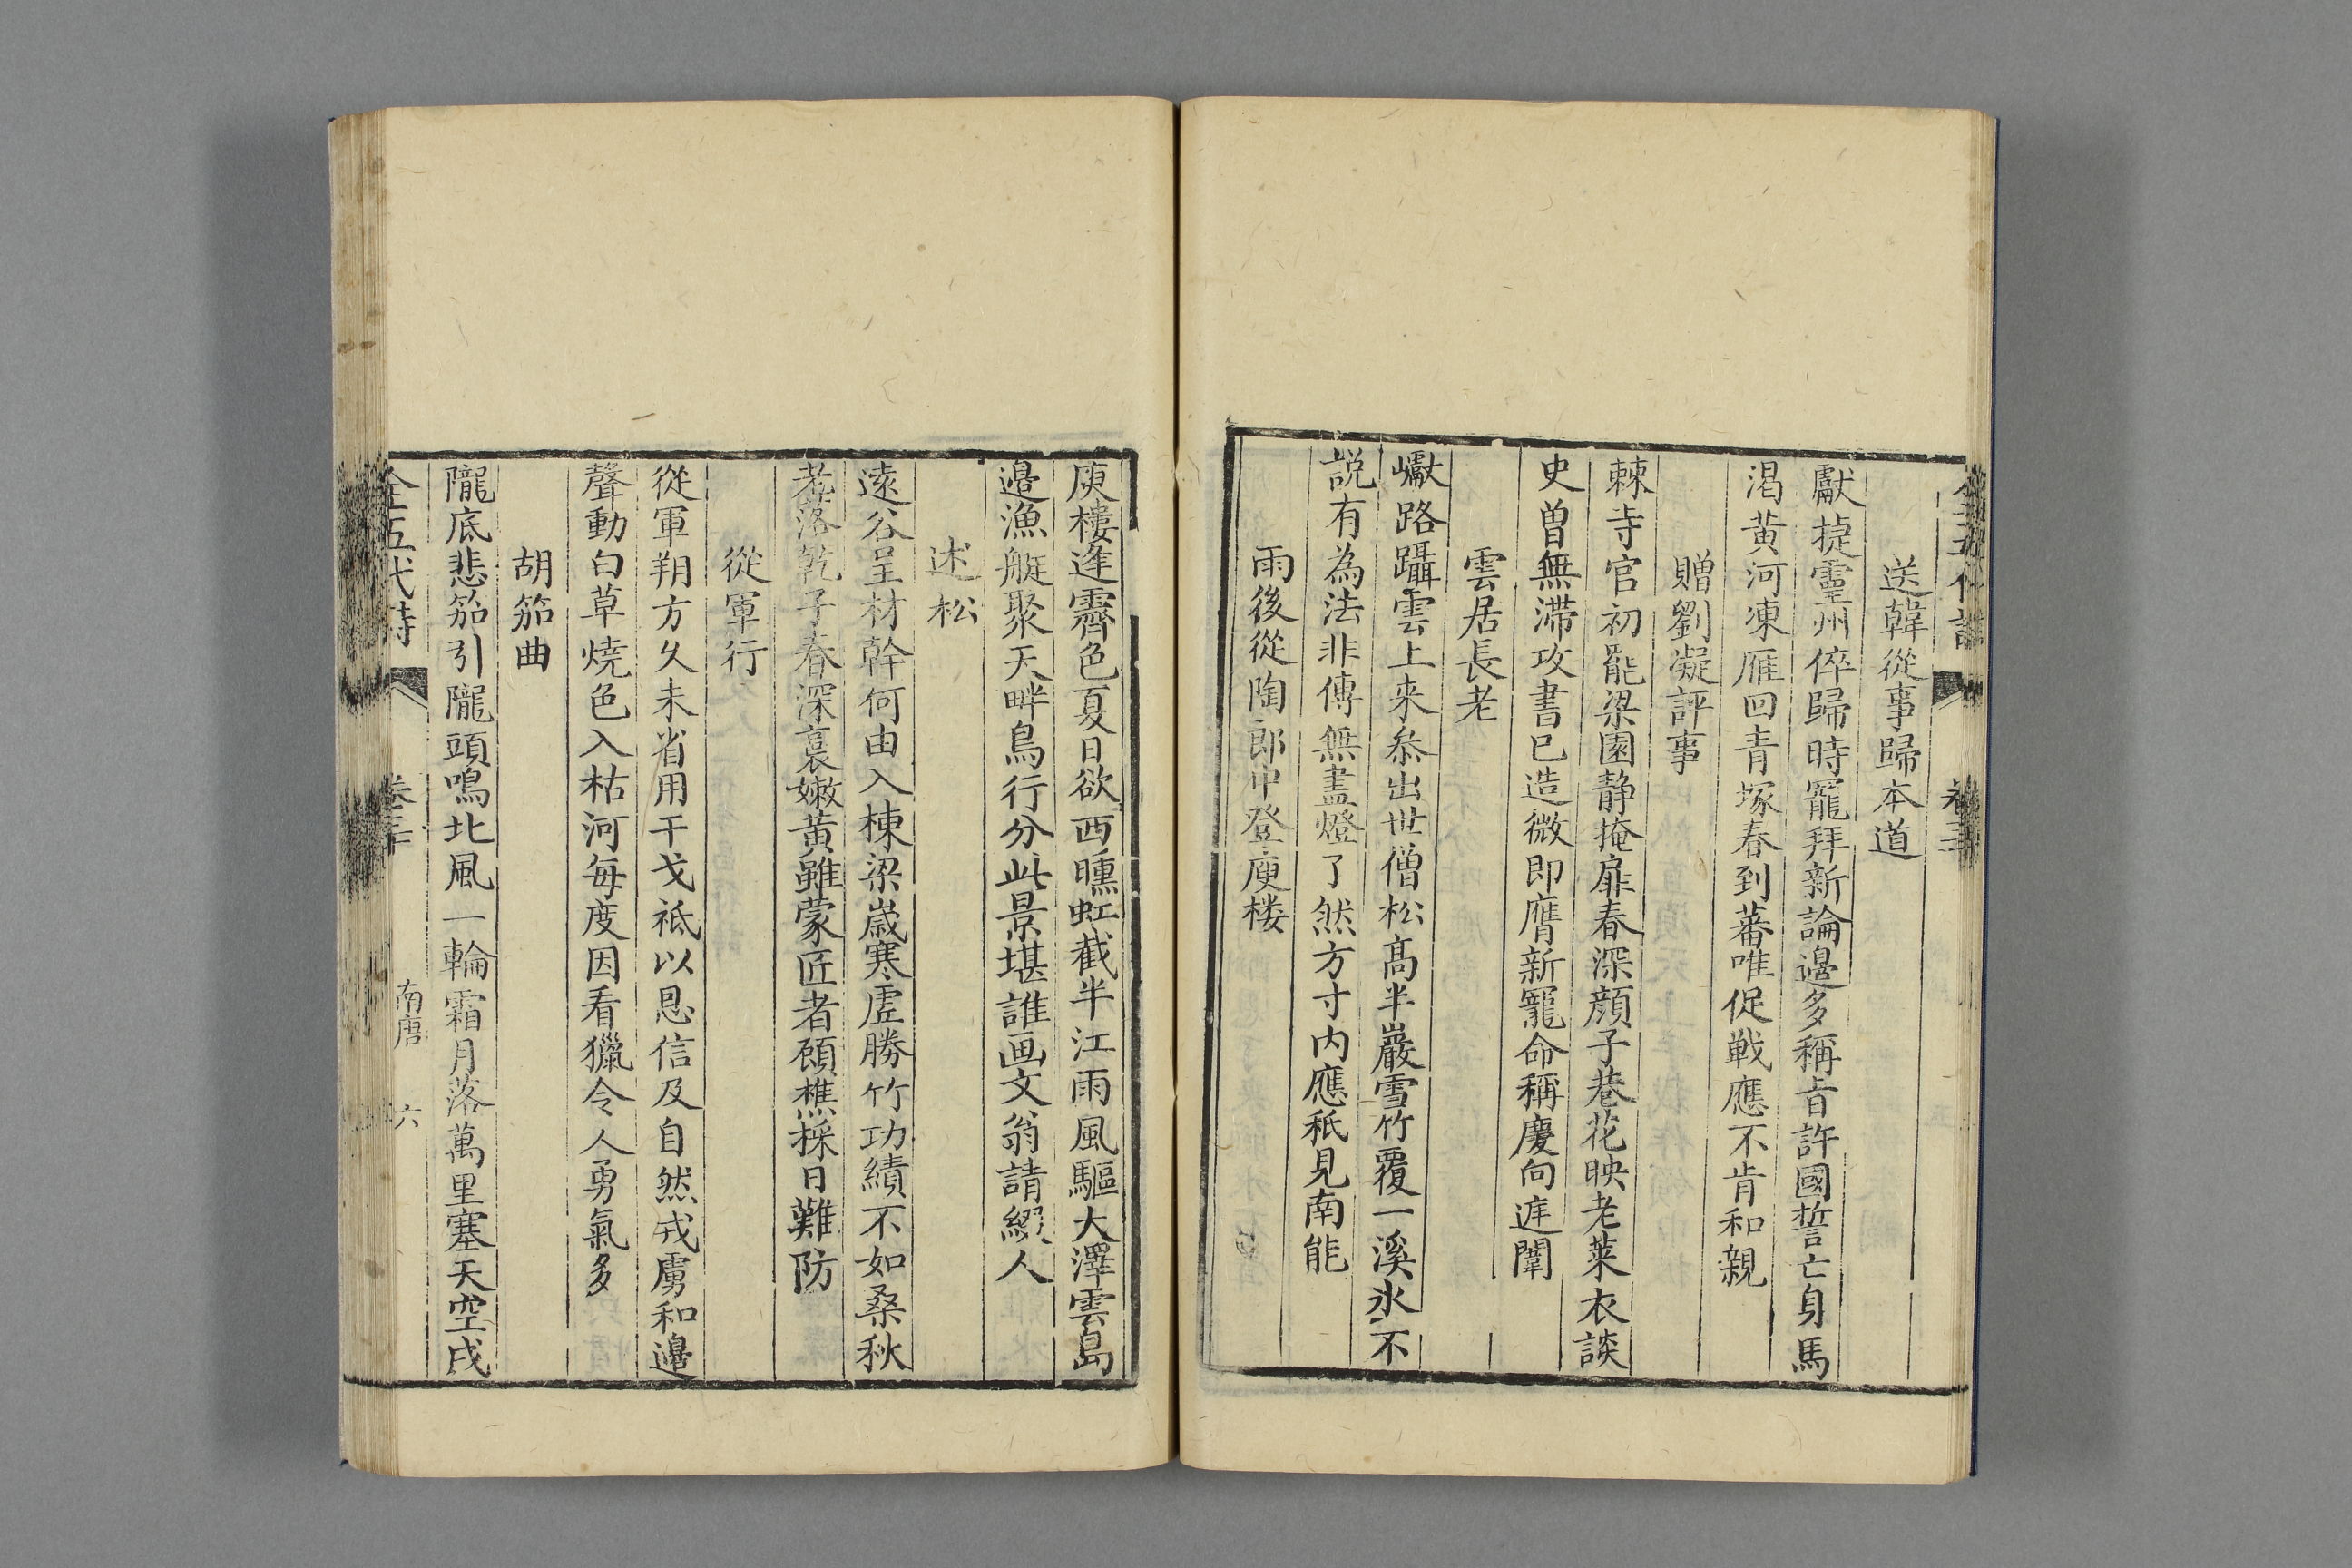 送韓從事歸本道
獻捷靈州倅歸時寵拜新論邊多稱旨許國誓亡身馬
渴黃河凍雁回青塚春到蕃唯促戦應不肯和親
贈劉凝評事
棘寺官初罷梁園静掩扉春深顏子巷花映老萊衣談
史曾無滯攻書已造微即膺新寵命稱慶向庭闈
雲居長老
巘路躡雲上来叅出世僧松髙半巖雪竹覆一溪氷不
説有為法非傳無盡燈了然方寸内應秖見南能
雨後從陶郎中登庾楼
庾樓逢霽色夏日欲西曛虹截半江雨風驅大澤雲島
邉漁艇聚天畔鳥行分此景堪誰画文翁請綴人
述松
遠谷呈材幹何由入棟梁歲寒虚勝竹功績不如桑秋
老落乾子春深裛嫩黃雖蒙匠者顧樵採日難防
從軍行
從軍朔方久未省用干戈祗以恩信及自然戎虜和邉
聲動白草燒色入枯河每度因看獵令人勇氣多
胡笳曲
隴底悲笳引隴頭鳴北風一輪霜月落萬里塞天空戍
全五代詩 卷三十 南唐 六